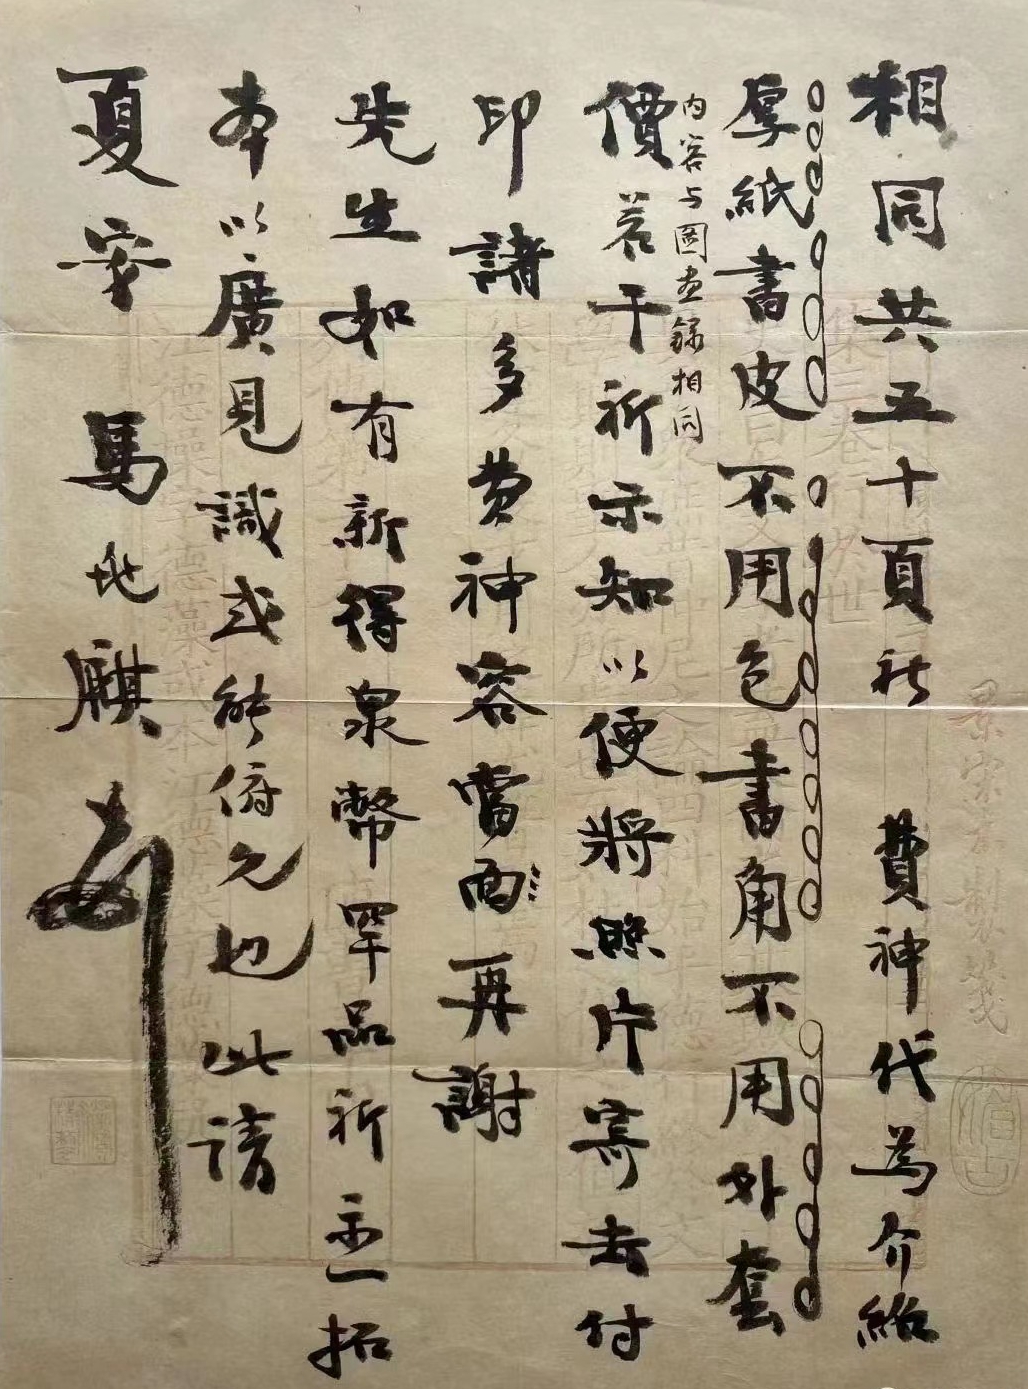 相同共五十頁祈 費神代為介紹
厚紙書皮不用包書角不用外套
内容与圖画錄相同
價若干祈示知以便將照片寄去付
印諸多費神容當面再謝
先生如有新得泉幣罕品祈示一拓
本以廣見識或能俯允也此請
夏安 馬麒